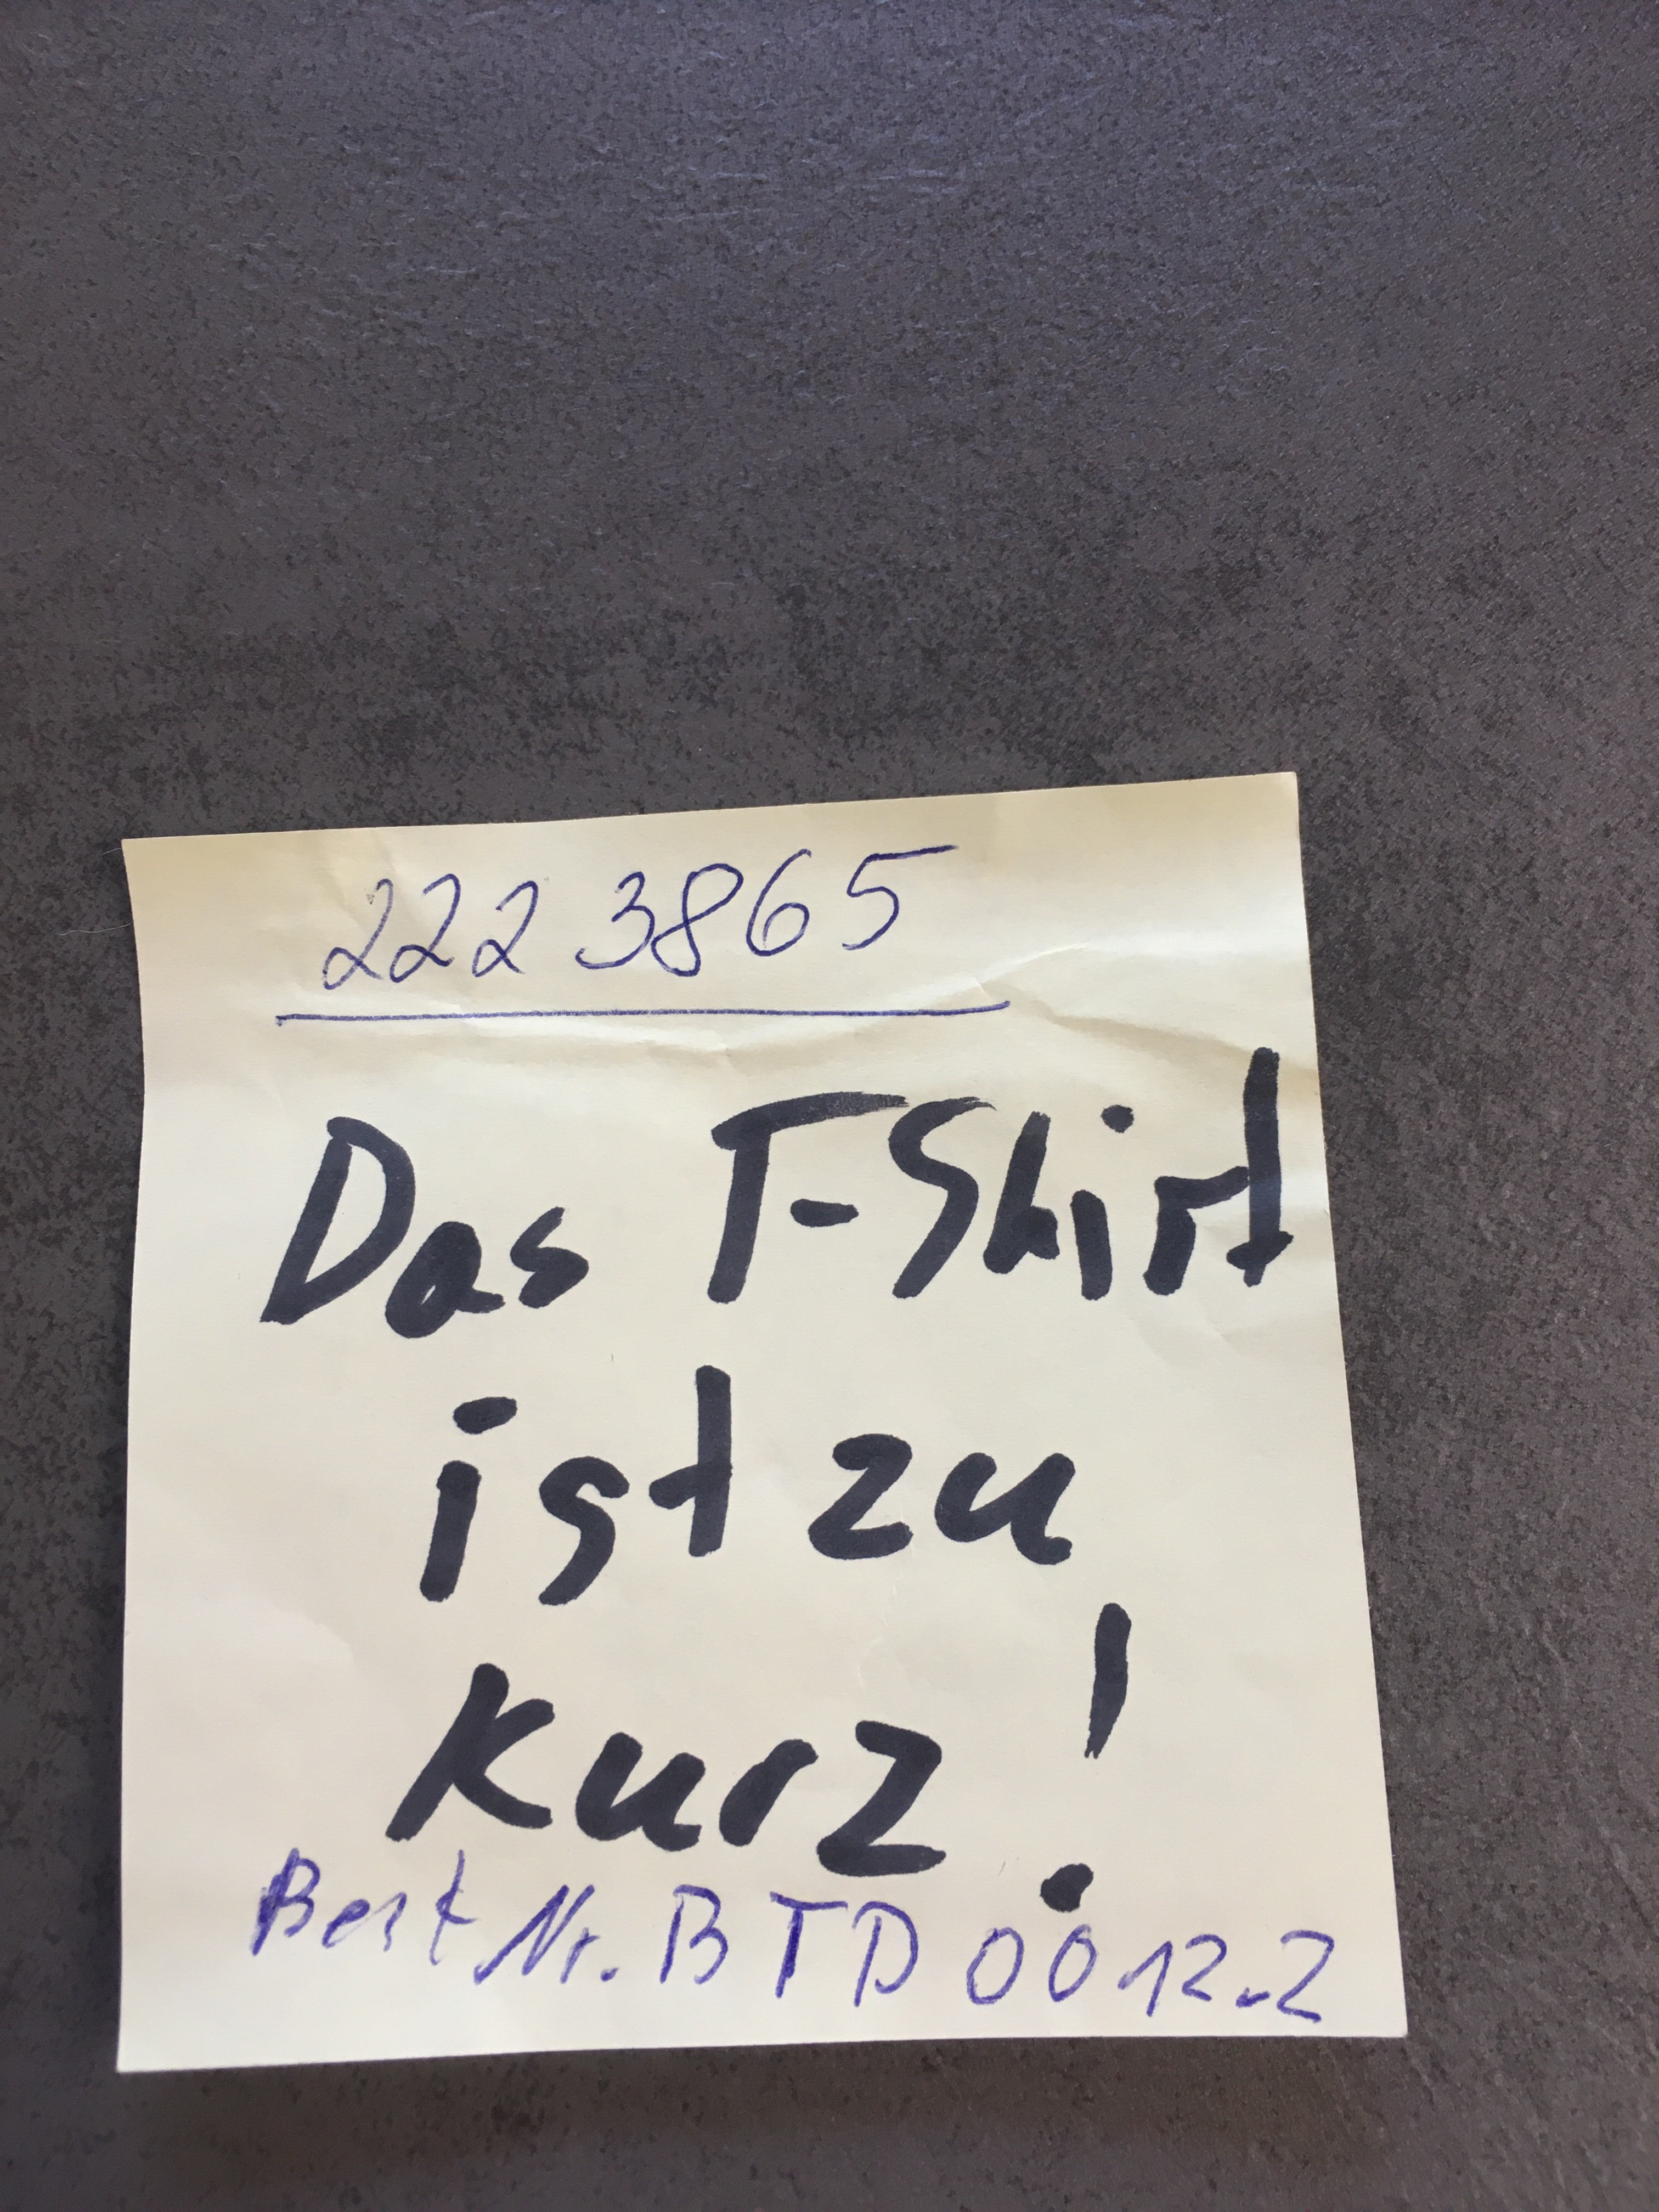 222 3865
Das T-Shirt
ist zu
kurz!
Best Nr. BTD 0012-2